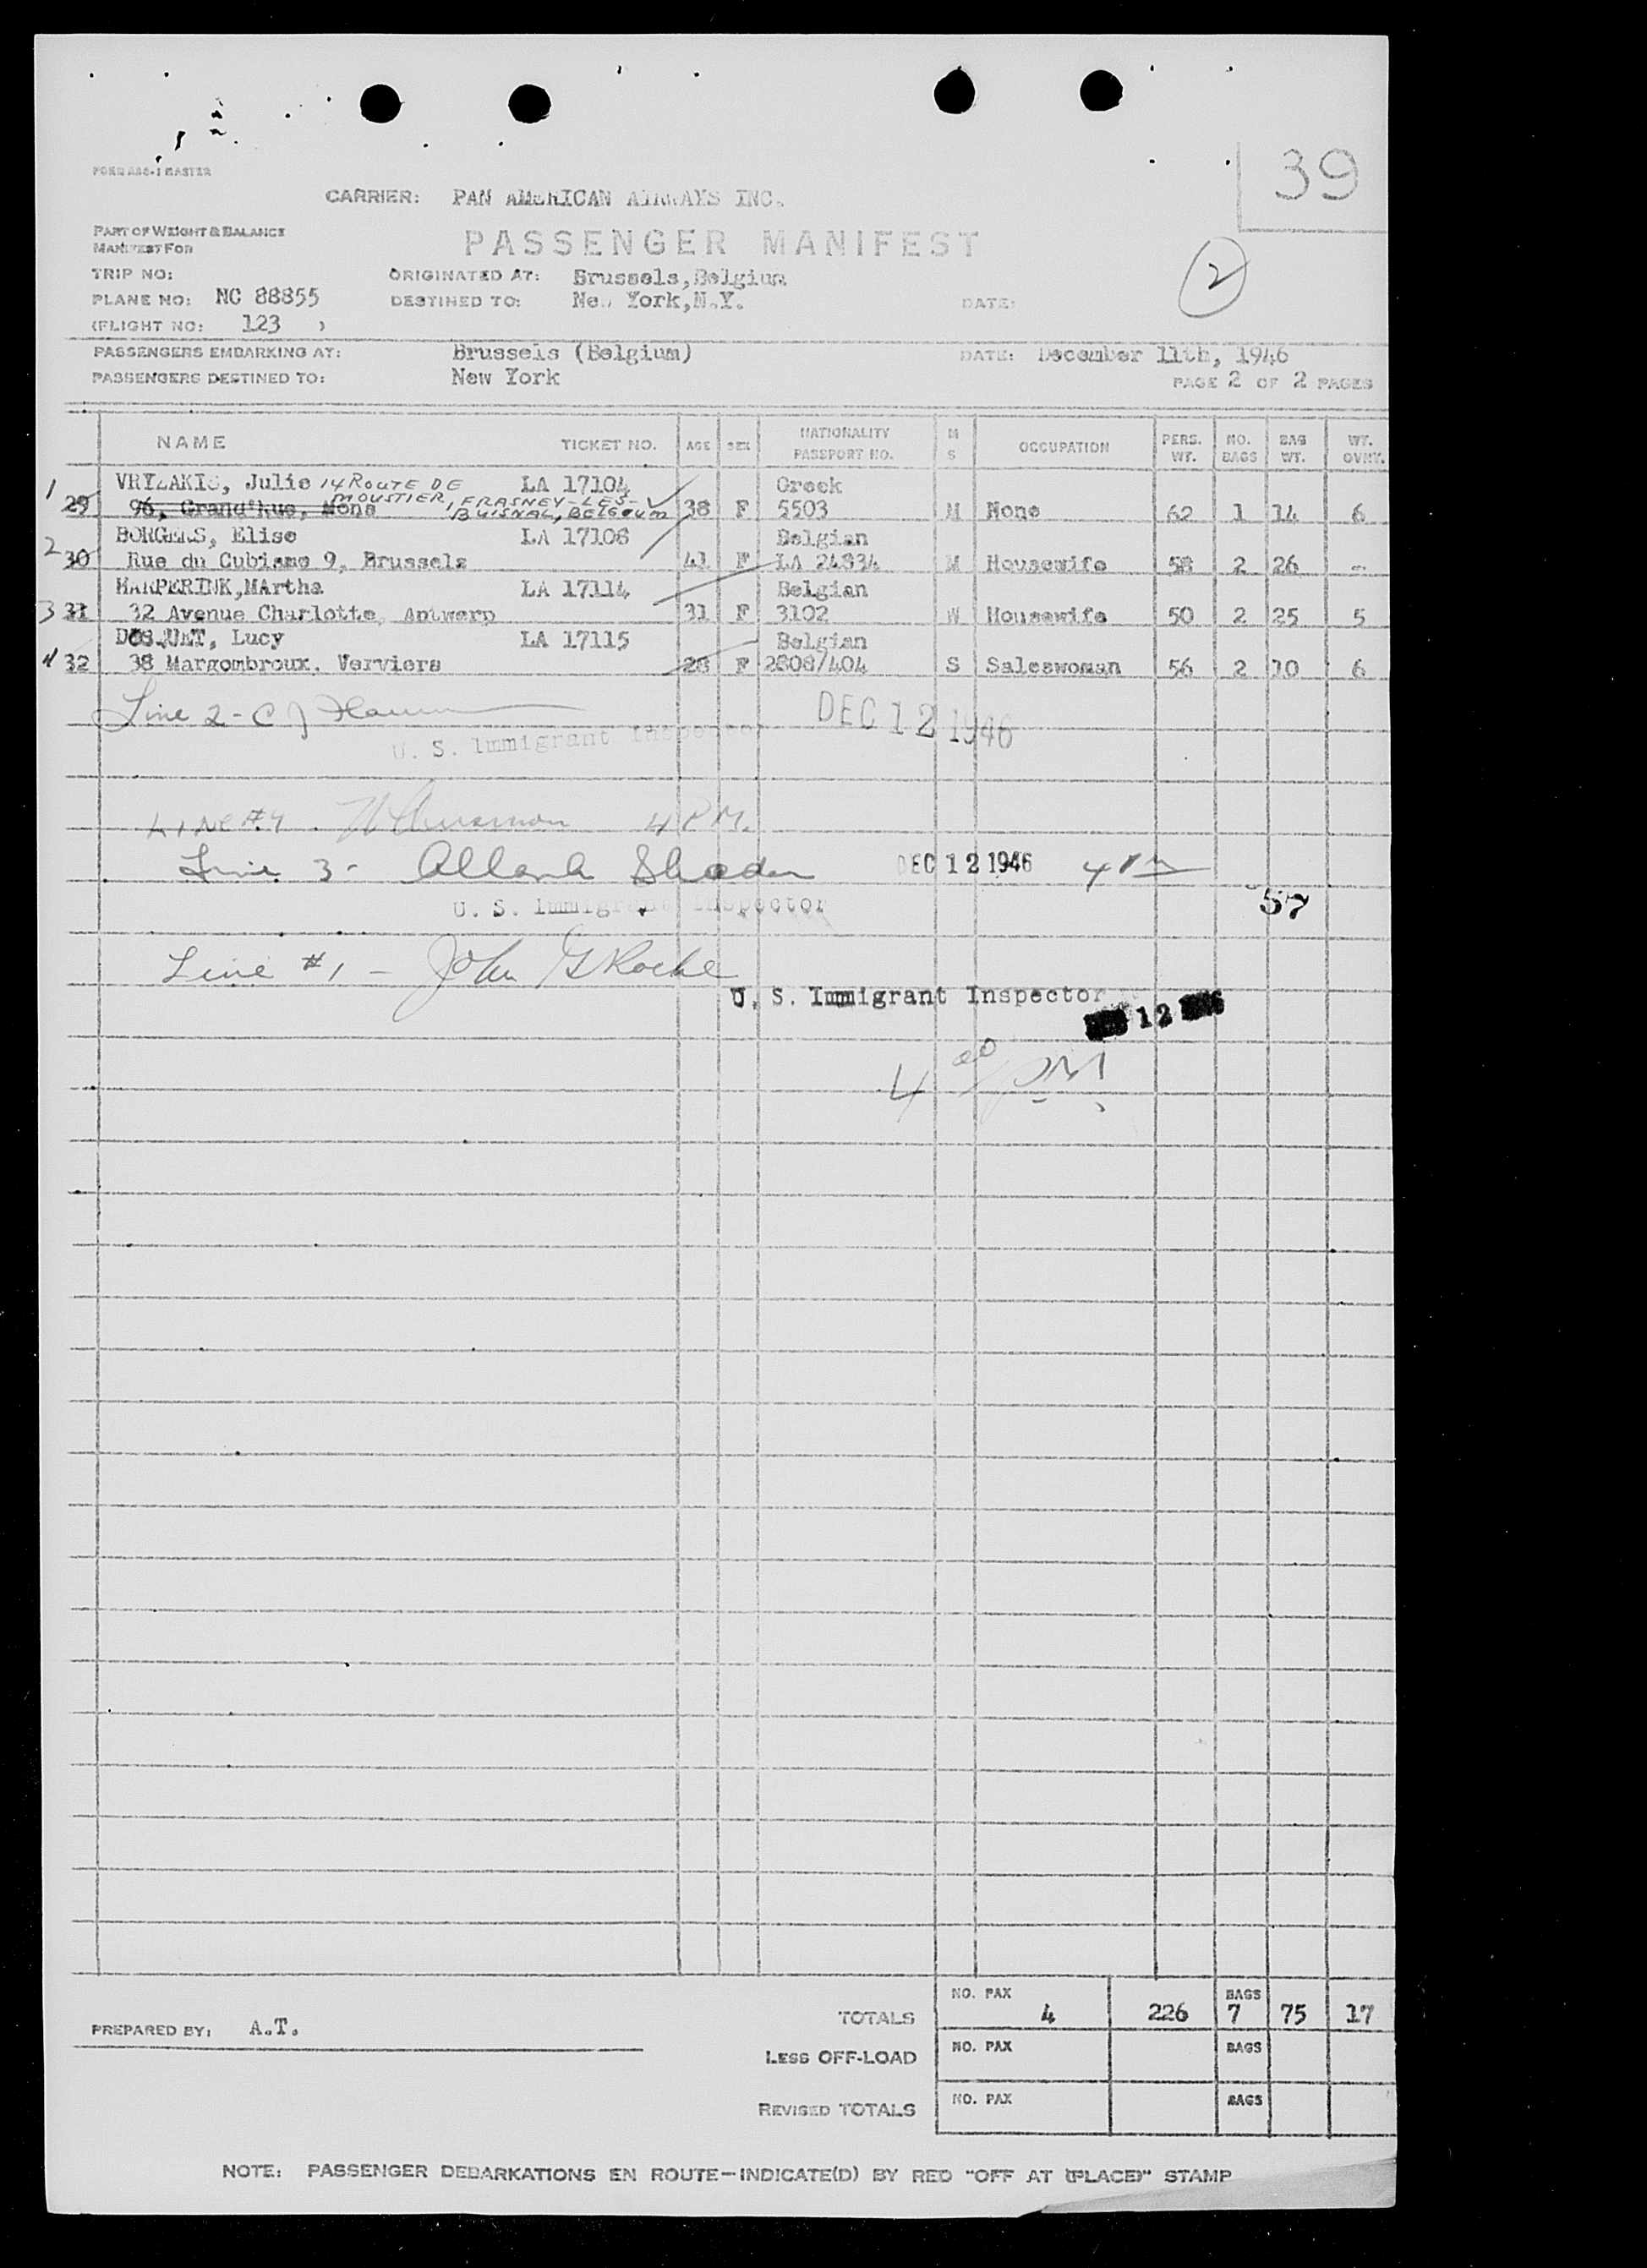 39
FORM ASC-1 MASTER
CARRIER: PAN AMERICAN AIRWAYS INC.
PART OF WEIGHT & BALANCE
MANIFEST FOR
PASSENGER MANIFEST
2
TRIP NO: ORIGINATED AT: Brussels, Belgium
PLANE NO: NC 88855 DESTINED TO: New York, N.Y. DATE:
(FLIGHT NO: 123 )
PASSENGERS EMBARKING AT: Brussels (Belgium) DATE: December 11th, 1946
PASSENGERS DESTINED TO: New York PAGE 2 OF 2 PAGES
NAME TICKET NO. AGE SEX NATIONALITY PASSPORT NO. M S OCCUPATION PERS. WT. NO. BAGS BAG WT. WT. OVNT.
VRIZAKIS, Julie 14 ROUTE DE LA 17104 Greek
MOUSTIER, FRASNEY-LES-
1 29 96, Grand'Rue, Mons BUISNAL, BELGIUM 38 F 5503 M None 62 1 14 6
BORGERS, Elise LA 17106 Belgian
2 30 Rue du Cubisme 9, Brussels 41 F LA 24834 M Housewife 58 2 26 -
HARPERINK, MArtha LA 17114 Belgian
3 31 32 Avenue Charlotte, Antwerp 31 F 3102 W Housewife 50 2 25 5
DOSQUET, Lucy LA 17115 Belgian
4 32 38 Margombroux, Verviers 28 F 2808/404 S Saleswoman 56 2 10 6
Line 2 - C J
DEC 12 1946
U. S. Immigrant Inspector
LINE #4 4 P.M.
Line 3 - Shader DEC 12 1946 4 PM
57
U. S. Immigrant Inspector
Line #1 - John G Roche
U. S. Immigrant Inspector
12
4 00 PM
TOTALS NO. PAX 4 226 BAGS 7 75 17
PREPARED BY: A.T.
LESS OFF-LOAD NO. PAX BAGS
REVISED TOTALS NO. PAX BAGS
NOTE: PASSENGER DEBARKATIONS EN ROUTE—INDICATE(D) BY RED "OFF AT (PLACE)" STAMP